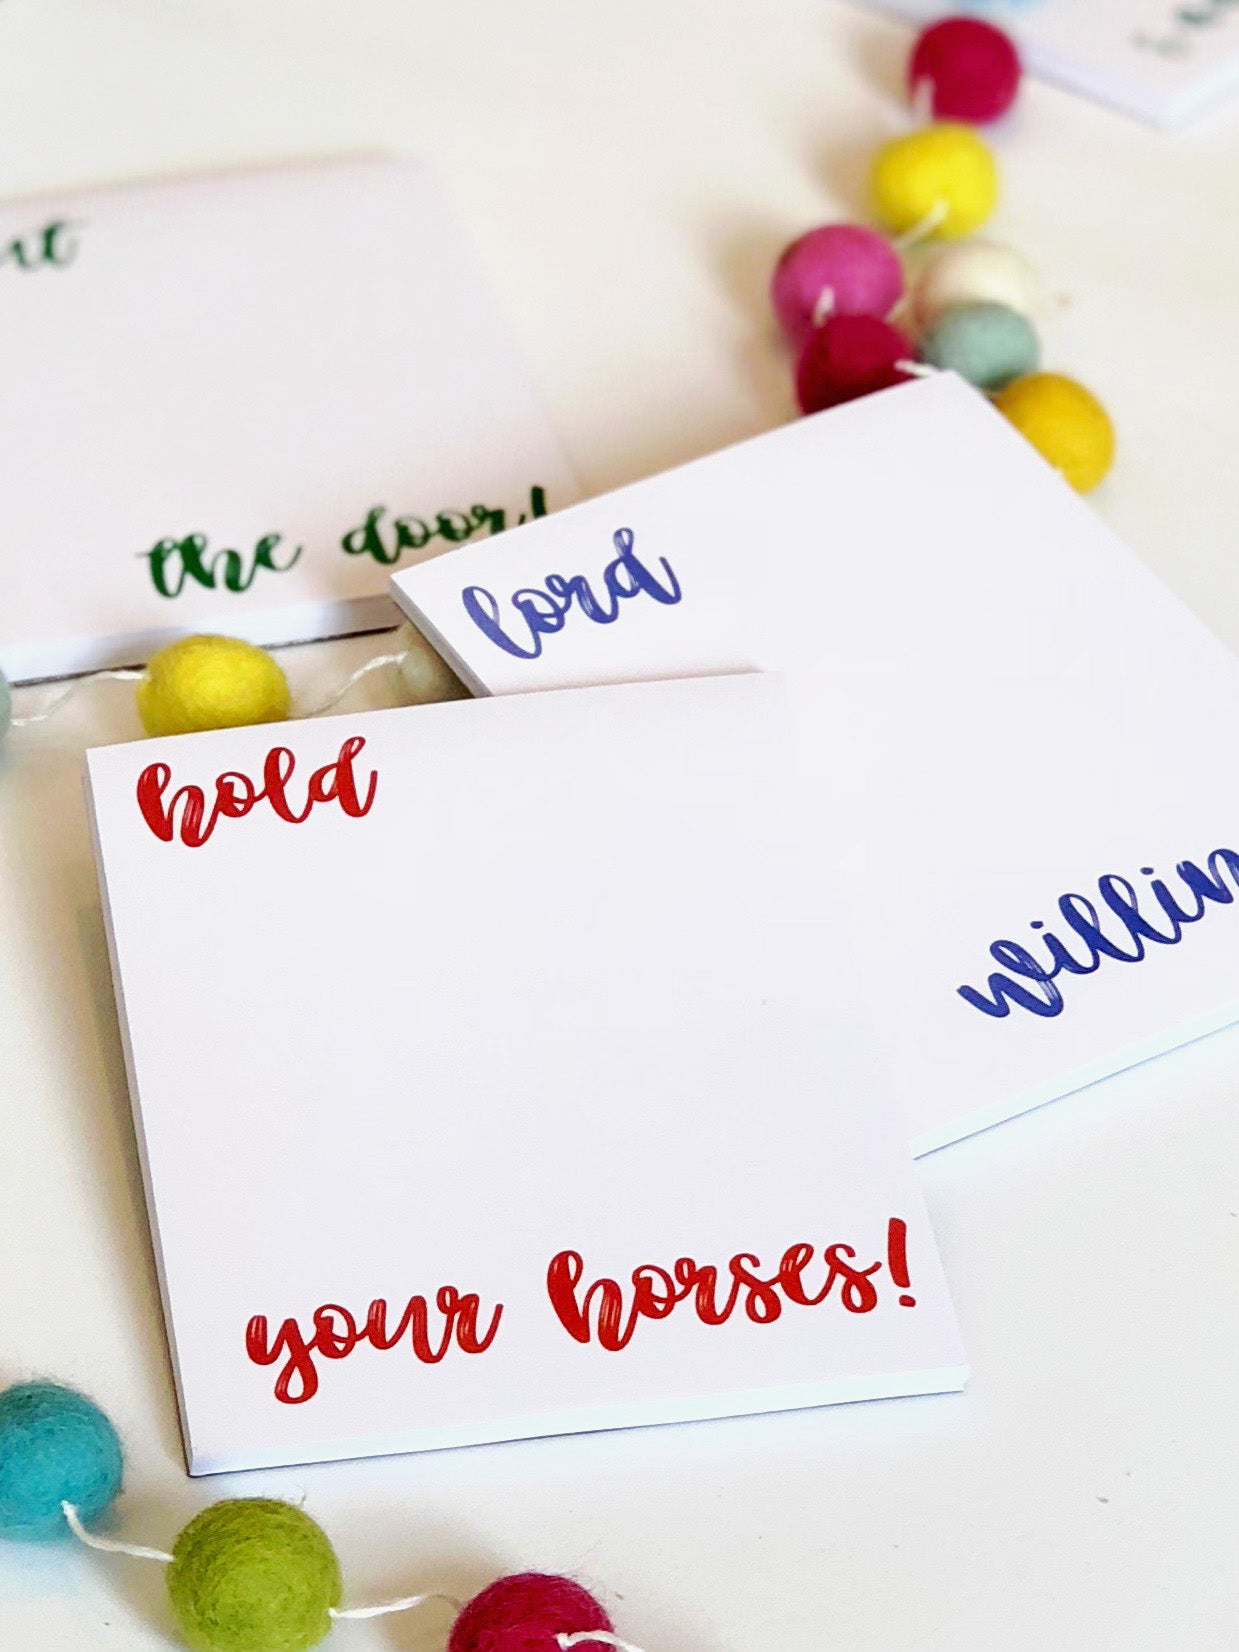 the door!
lord
willin
hold
your horses!